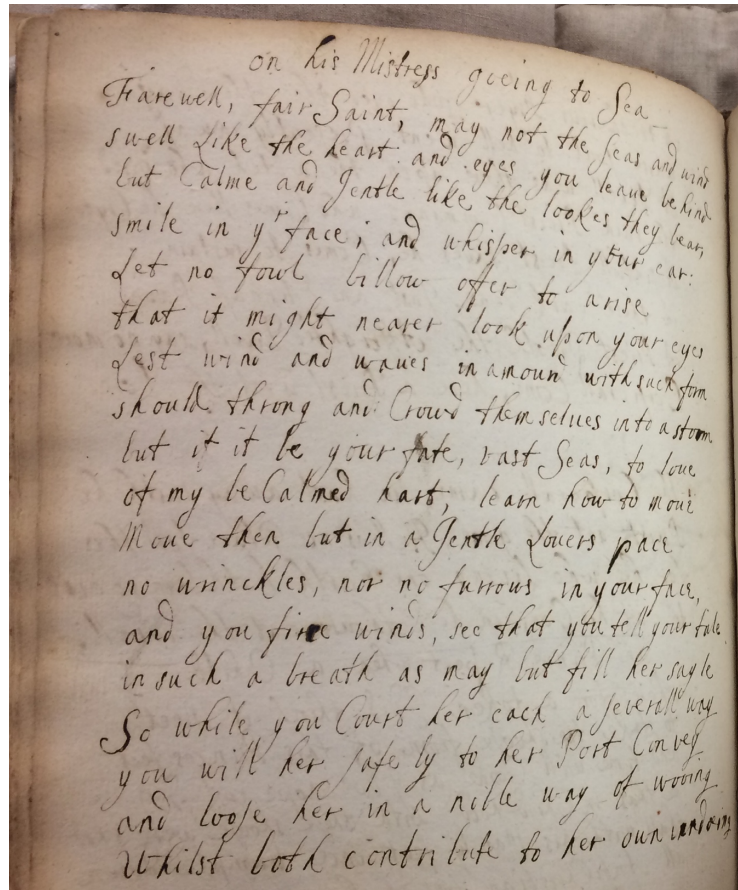 on his Mistress goeing to Sea
Farewell, fair Saint, may not the seas and wind
swell Like the heart and eyes you leave behind
but Calme and Gentle like the lookes they bear,
smile in yr face; and whisper in your ear:
Let no fowl billow offer to arise
that it might nearer look upon your eyes
Lest wind and waves inamourd with such form
should throng and Crowd themselves into a storm
but if it be your fate, vast Seas, to love
of my beCalmed hart, learn how to move
Move then but in a Gentle Lovers pace
no wrinckles, nor no furrows in your face,
and you winds, see that you tell your tale
in such a breath as may but fill her sayle
So while you Court her each a severall way
you will her safely to her Port Convey
and loose her in a way of wooing
Whilst both contribute to her own